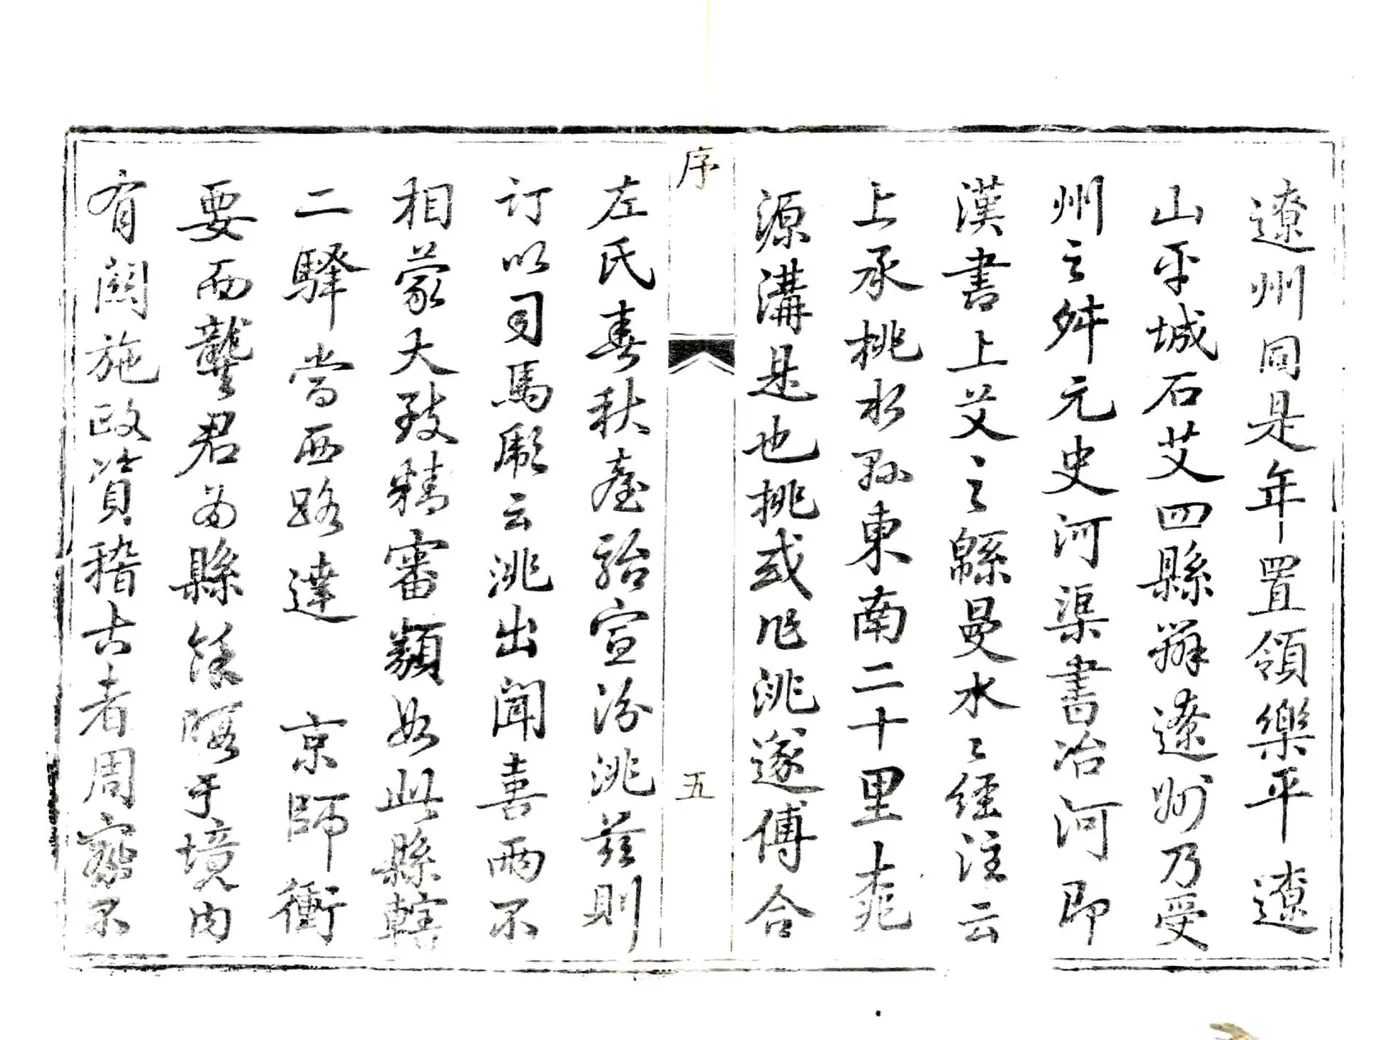 遼州同是年置領樂平遼
山平城石艾四縣辯遼州乃受
州之舛元史河渠書冶河即
漢書上艾之緜曼水〻經注云
上承桃水縣東南二十里桃
源溝是也挑或作洮遂傅合
序
五
左氏春秋臺駘宣汾洮茲則
訂以司馬彪云洮出聞喜兩不
相蒙大致精審類如此縣轄
二驛當西路達　京師衝
要而龔君縣餘暇于境內
有關施政資稽古者周不